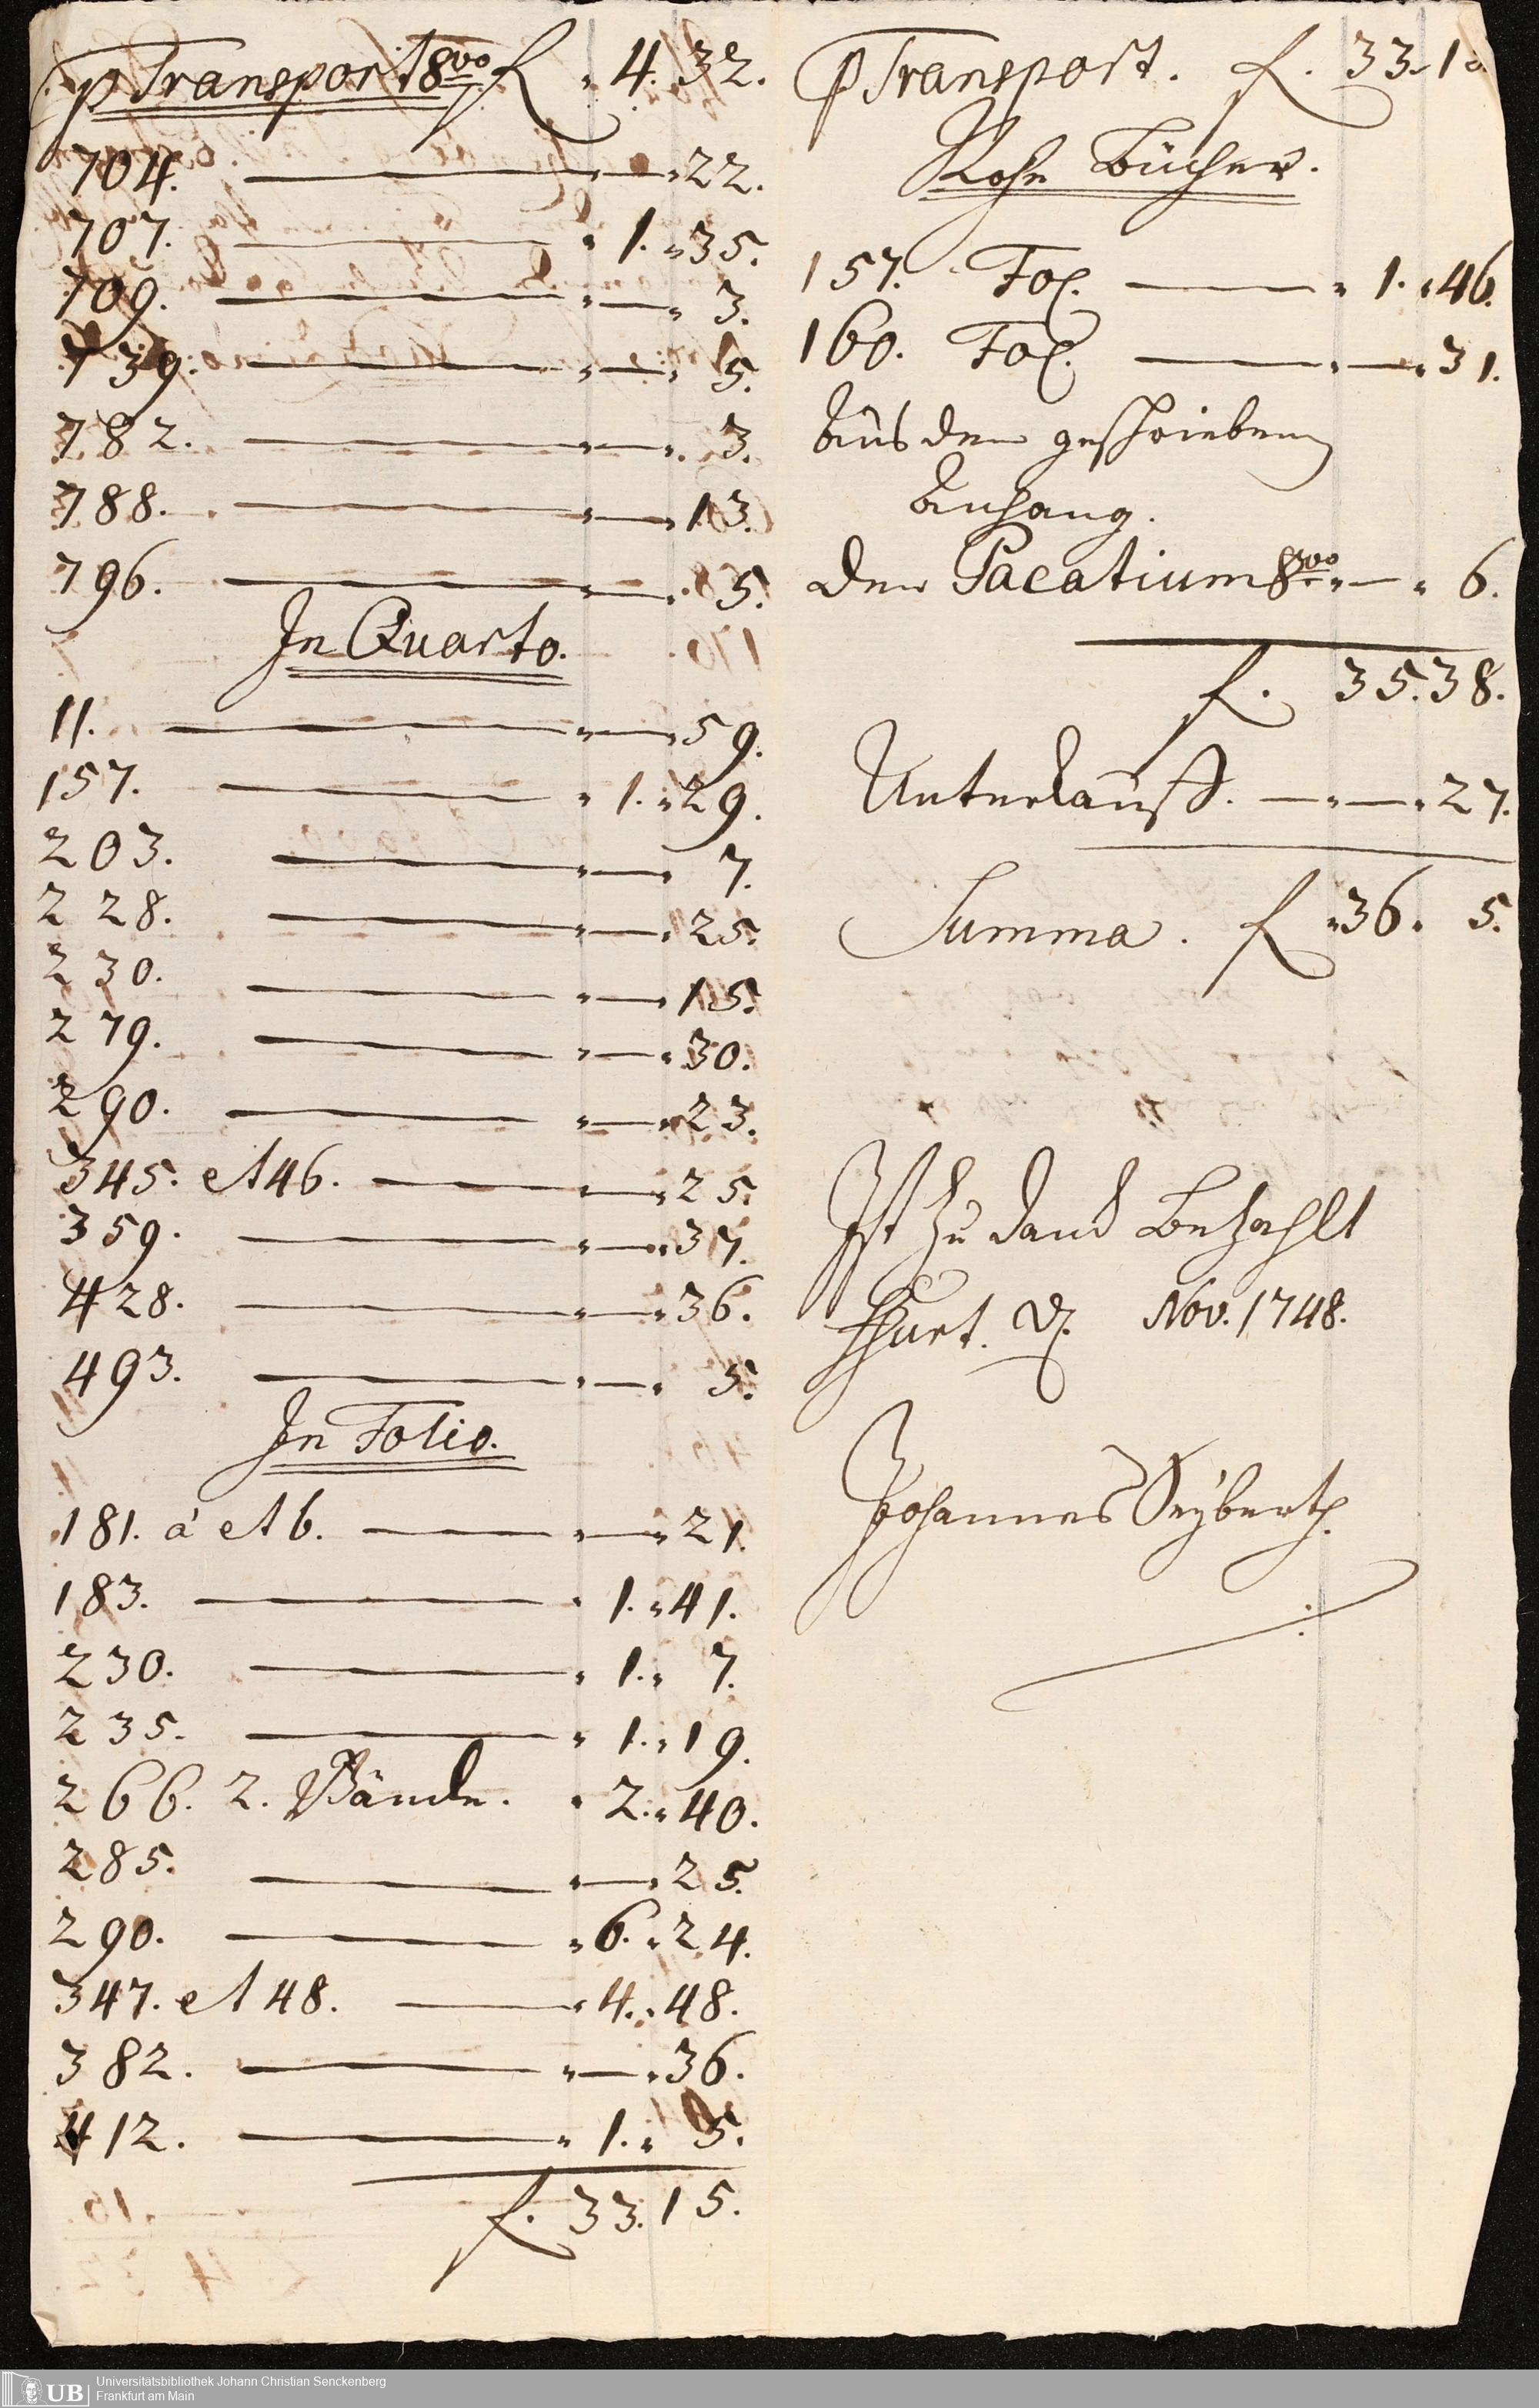 p Transport 8vo f. 4. 32.
704. — — 22.
707. — 1. 35.
709. — — 3.
739. — — 5.
782. — — 3.
788. — — 13.
796. — — 5.
In Quarto.
11. — — 59.
157. — 1. 29.
203. — — 7.
228. — — 25.
230. — — 15.
279. — — 30.
290. — — 23.
345. et 46. — — 25.
359. — — 37.
428. — — 36.
493. — — 5.
In Folio.
181. a et b. — — 21.
183. — 1. 41.
230. — 1. 7.
235. — 1. 19.
266. 2. Bände. 2. 40.
285. — — 25.
290. — 6. 24.
347. et 48. — 4. 48.
382. — — 36.
412. — 1. 5.
f. 33. 15.
p Transport. f. 33. 15
Rohe Bücher.
157. Fol. — 1. 46.
160. Fol. — — 31.
Aus dem geschriebenen
Anhang.
den Pacatium 8vo — 6.
f. 35. 38.
Unterkauff. — — 27.
Summa. f. 36. 5.
Ist zu danck bezahlt
ffurt. d. Nov. 1748.
Johannes Seyberth.
UB
Universitätsbibliothek Johann Christian Senckenberg
Frankfurt am Main